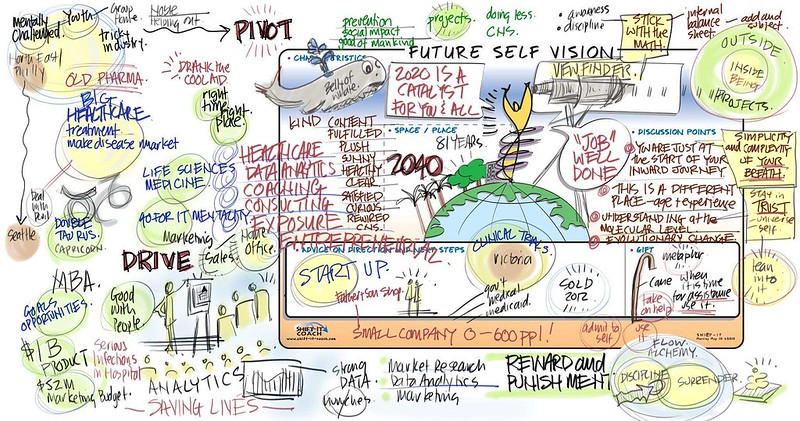 Mentally
Challenged.
Youth
Group
Home
Helping out
tricky
industry.
North East
Philly
OLD PHARMA.
DRANK the
COOLAID
PIVOT
prevention
social impact
good of mankind
projects.
doing less.
CNS.
• awareness
• discipline
STICK
WITH the
MATH.
internal
balance
sheet.
add and
subject
FUTURE SELF VISION
• CHARACTERISTICS
Belt of
whale.
2020 IS A
CATALYST
FOR YOU & ALL
VIEWFINDER.
OUTSIDE
INSIDE
BEING
PROJECTS.
BIG
HEALTHCARE
treatment
make disease market
right
time,
right
place.
KIND CONTENT
FULFILLED.
PLUSH
SUNNY
HEALTHY
CLEAR
SATISFIED
CURIOUS.
REWIRED
CNS.
• SPACE / PLACE
81 YEARS.
2040
HEALTHCARE
DATA ANALYTICS
COACHING
CONSULTING
EXPOSURE
ENTREPRENEUR
"JOB"
WELL
DONE
• DISCUSSION POINTS
YOU ARE JUST AT
the START OF YOUR
INWARD JOURNEY.
THIS IS A DIFFERENT
PLACE - age + experience
UNDERSTANDING at the
MOLECULAR LEVEL
EVOLUTIONARY CHANGE
SIMPLICITY
and COMPLEXITY
OF YOUR
BREATH.
STAY in
TRUST
- universe
self.
LIFE SCIENCES
MEDICINE.
Deal
with
Devil
DOUBLE
TAURUS.
CAPRICORN.
GO FOR IT MENTALITY
Marketing
Sales
Home
Office.
Seattle
DRIVE
• ADVICE ON DIRECTION AND NEXT STEPS
START UP.
CLINICAL TRIAL
Victoria
gov't
medical
medicaid.
SOLD
2012
• GIFT
metaphor
Cane when
it is time
for assistance
use it.
take
on help
lean in to
it
MBA.
GOALS
OPPORTUNITIES.
Good
with
People
$1 B
PRODUCT
$52M
Marketing Budget.
Serious
Infections
in Hospital
ANALYTICS
— SAVING LIVES —
SHIFT-IT
COACH
www.shift-it-coach.com
SMALL COMPANY 0-600 ppl!
admit to
self
use
it
SHIFT-IT
strong
DATA.
hunches.
• Market Research
• Data Analytics
• Marketing
REWARD and
PUNISHMENT
FLOW.
ALCHEMY.
DISCIPLINE
SURRENDER.